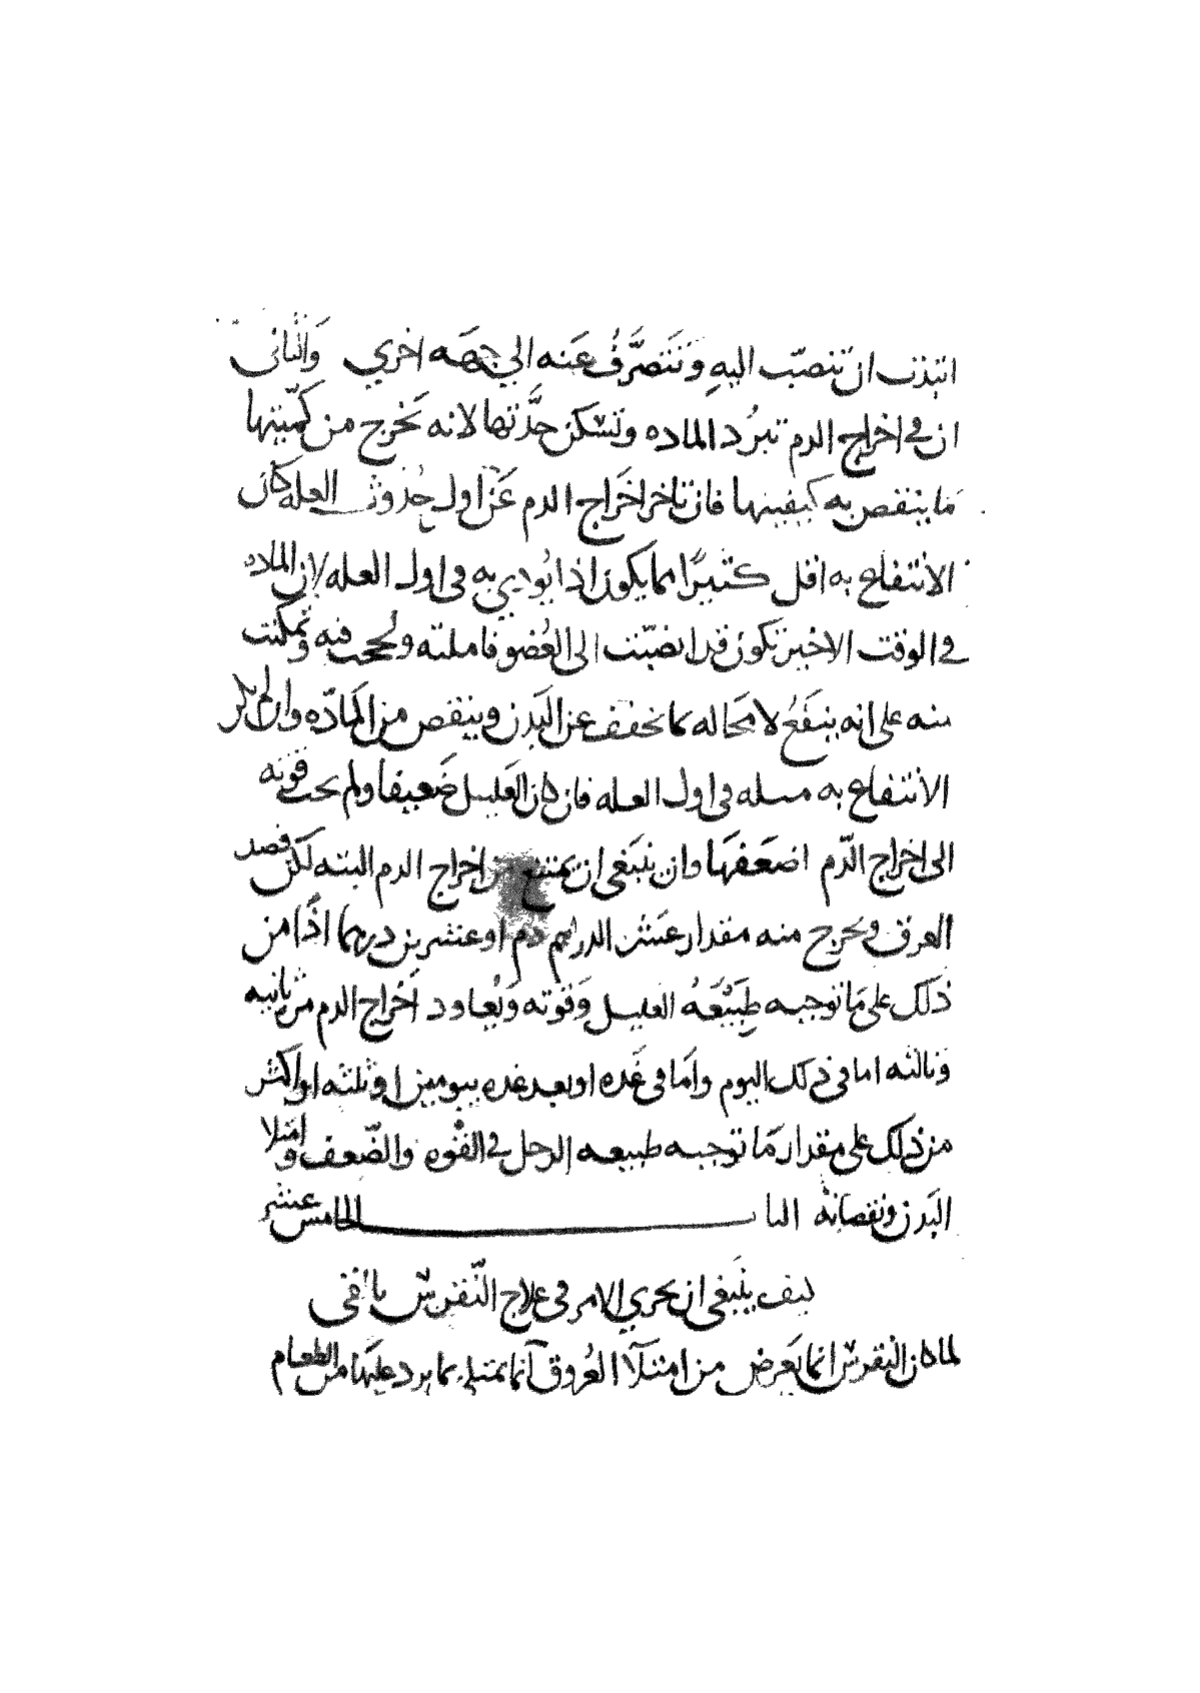 ابتدت ان تنصبّ اليهِ وَتَتَصَرَّفُ عَنه الي جهَه اخري وَالثاني
ان في اخراج الدم تبرُد الماده وتسكن حِدَّتها لانه يَخرج من كمّيتها
مَا ينتفص به كيفيتها فان تاخر اخَراج الدم عَن اول حُدوث العله كان
الانتفاع به اقل كثيرًا مما يكون اذا بُودي به في اول العله لان الماده
في الوقت الاخير تكون قد انصبّت الى العُضو فاملته ولححت فيه وتمكنت
منه على انه ينَفعُ لا مَحاله كما يخفف عن البَدن وينقص من المادّه وان لم يكن
الانتفاع به مثله في اول العله فان كان العَليل ضَعيفا ولم تجب قوته
الى اخراج الدّم اضعَفهَا وان ينبَغي ان يمتنع من اخراج الدم البته لكن فصد
العرق ويخرج منه مقدار عَشر الدراهم دم او عشرين درهما اذًا من
ذلك على مَا توجبه طَبيْعَهُ العليل وَقوته وَيُعاود اخراج الدم من ثانيه
وثالثه اما في ذلك اليوم وامَا في غَده او بعد غده بيومين او ثلثه او اكثر
من ذلك على مقدار مَا توجبه طبيعه الرجل في القوه والضّعف وامتلا
البَدن ونقصانه الباب الخامس عشر
كيف ينبغي ان يجري الامر في علاج النّقرس باقي
لما كان النقرس انما يَعرض من امتلَآ العُروق آنما تمتلي مما يرد عليهَا من الطعام